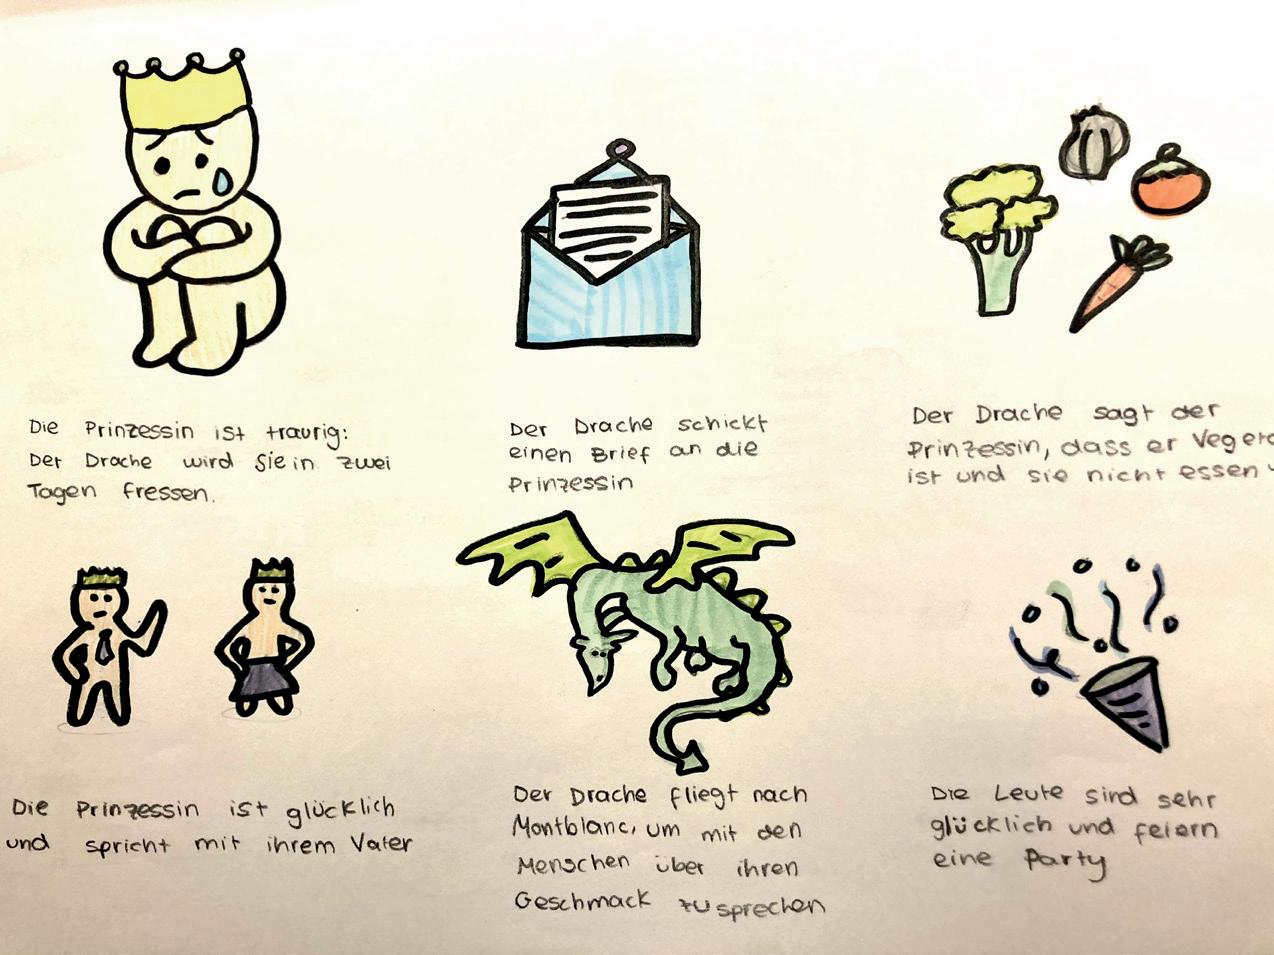 Die Prinzessin ist traurig:
Der Drache wird sie in zwei
Tagen fressen.
Der Drache schickt
einen Brief an die
Prinzessin
Der Drache sagt der
Prinzessin, dass er
ist und sie nicht essen
Die Prinzessin ist glücklich
und spricht mit ihrem Vater
Der Drache fliegt nach
Montblanc, um mit den
Menschen über ihren
Geschmack zu sprechen
Die Leute sind sehr
glücklich und feiern
eine Party